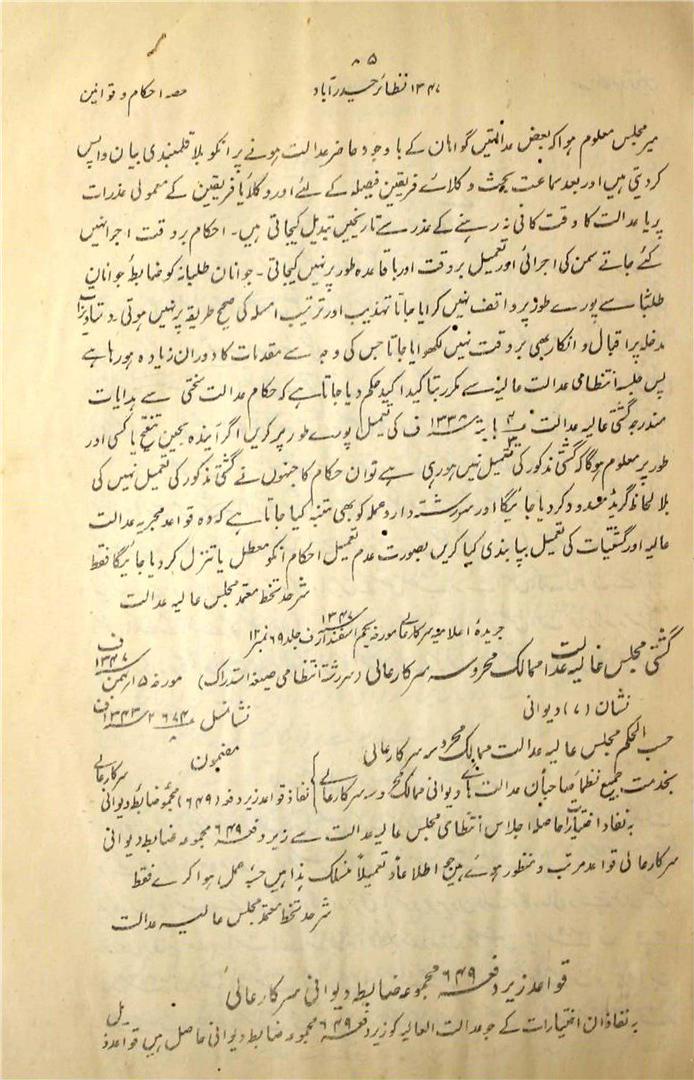 ۸۵
۱۳۴۷ نظائر حیدرآباد
حصہ احکام و قوانین
میر مجلس معلوم ہوا کہ بعض عدالتیں گواہان کے باوجود حاضر عدالت ہونے پر انکو بلا قلمبندی بیان واپس
کردیتی ہیں اور بعد سماعت بحث وکلائے فریقین فیصلہ کے لئے اور وکلا یا فریقین کے معمولی عذرات
پر یا عدالت کا وقت کافی نہ رہنے کے عذر سے تاریخیں تبدیل کیجاتی ہیں۔ احکام بر وقت اجرا نہیں
کئے جاتے سمن کی اجرائی اور تعمیل بر وقت اور باقاعدہ طور پر نہیں کیجاتی۔ جوانان طلبانہ کو ضابطہ جوانان
طلبانہ سے پورے طور پر واقف نہیں کرایا جاتا تہذیب اور ترتیب امسلہ کی صحیح طریقہ پر نہیں ہوتی۔ دستاویزات
مدخلہ پر اقبال و انکار بھی بر وقت نہیں لکھوایا جاتا جس کی وجہ سے مقدمات کا دوران زیادہ ہو رہا ہے
پس جلسہ انتظامی عدالت عالیہ سے مکرر بتاکید اکید حکم دیا جاتا ہے کہ حکام عدالت سختی سے ہدایات
مندرجہ گشتی عالیہ عدالت ۱۳۳۸ ف کی تعمیل پورے طور پر کریں اگر آیندہ بحین تنقیح یا کسی اور
طور پر معلوم ہوگا کہ گشتی مذکور کی تعمیل نہیں ہو رہی ہے تو ان حکام کا جنہوں نے گشتی مذکور کی تعمیل نہیں کی
بلا لحاظ گریڈ مسدود کردیا جائیگا اور سررشتہ دار و عملہ کو بھی متنبہ کیا جاتا ہے کہ وہ قواعد مجریہ عدالت
عالیہ اور گشتیات کی تعمیل بپابندی کیا کریں بصورت عدم تعمیل احکام انکو معطل یا تنزل کردیا جائیگا فقط
شرحد تخط معتمد مجلس عالیہ عدالت
جریدۂ اعلامیہ سرکارعالی مورخہ یکم اسفندار ۱۳۴۷ف جلد ۶۹ نمبر ۱۲
گشتی مجلس عالیہ عدالت ممالک محروسہ سرکارعالی (سررشتہ انتظامی صیغہ استدراک) مورخہ ۵ ار بہمن ۱۳۴۷ ف
نشان (۷) دیوانی
نشانمسل ۲۶۷۴ ۱۳۴۳ ف
حسب الحکم مجلس عالیہ عدالت ممالک محروسہ سرکارعالی
مضمون
بخدمت جمیع نظما صاحبان عدالت ہائے دیوانی ممالک محروسہ سرکارعالی
نفاذ قواعد زیر دفعہ (۶۴۹) مجموعہ ضابطہ دیوانی سرکارعالی
بہ نفاذ اختیارات حاصلہ اجلاس انتظامی مجلس عالیہ عدالت سے زیر دفعہ ۶۴۹ مجموعہ ضابطہ دیوانی
سرکار عالی قواعد مرتب و منظور ہوئے ہیں جو اطلاعاً و تعمیلاً منسلک ہذا ہیں حسبہ عمل ہوا کرے فقط
شرحد تخط معتمد مجلس عالیہ عدالت
قواعد زیر دفعہ ۶۴۹ مجموعہ ضابطہ دیوانی سرکار عالی
بہ نفاذ ان اختیارات کے جو عدالت العالیہ کو زیر دفعہ ۶۴۹ مجموعہ ضابطہ دیوانی حاصل ہیں قواعد ذیل